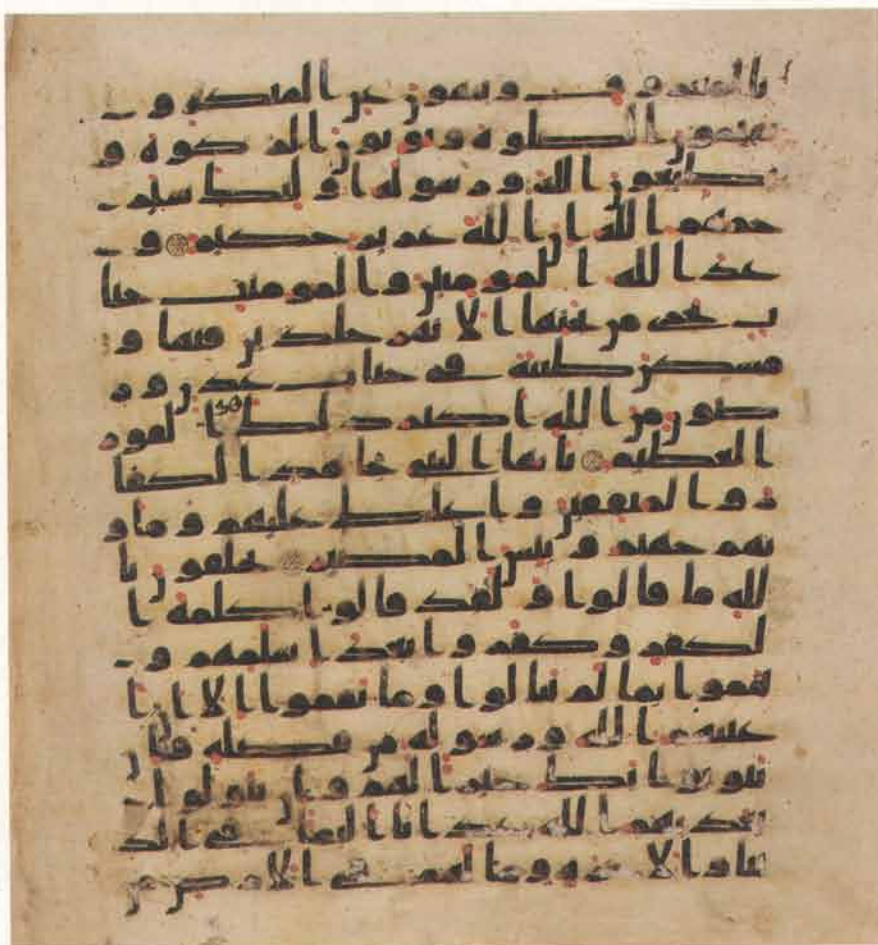 بالمعروف وينهون عن المنكر و
يقيمون الصلوة ويوتون الزكوة و
يطيعون الله ورسوله اولئك سير
حمهم الله ان الله عزيز حكيم و
عد الله المومنين والمومنت جنا
ت تجري من تحتها الانهر خلدين فيها و
مسكن طيبة في جنات عدن ور
ضون من الله اكبر ذلك هو الفوز
العظيم يايها النبي جاهد الكفا
ر والمنفقين واغلظ عليهم وماو
يهم جهنم وبئس المصير يحلفون با
لله ما قالوا ولقد قالوا كلمة ا
لكفر وكفروا بعد اسلمهم و
هموا بما لم ينالوا وما نقموا الا ان ا
غنيهم الله ورسوله من فضله فان
يتوبوا يك خيرا لهم وان يتولوا
يعذبهم الله عذابا اليما في الد
نيا والاخرة وما لهم في الارض من